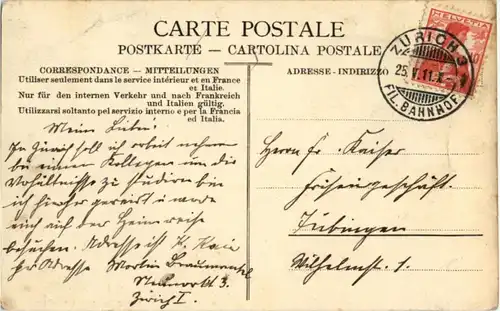 CARTE POSTALE
POSTKARTE – CARTOLINA POSTALE
CORRESPONDANCE – MITTEILUNGEN
Utiliser seulement dans le service intérieur et en France
et Italie.
Nur für den internen Verkehr und nach Frankreich
und Italien gültig.
Utilizzarsi soltanto pel servizio interno e per la Francia
ed Italia.
ADRESSE-INDIRIZZO
HELVETIA
ZÜRICH 3
25.V.11.X
FIL. BAHNHOF
Mein Lieber!
In Zürich soll ich
bei einem Kollegen um die
Verhältnisse zu studieren bin
ich hierher gereist u werde
euch auf der Heimreise
besuchen. Adresse ist
Adresse Martin
3.
Zürich I.
Herrn Fr. Kaiser
Frisiergeschäft.
Tübingen
Wilhelmst. 1.